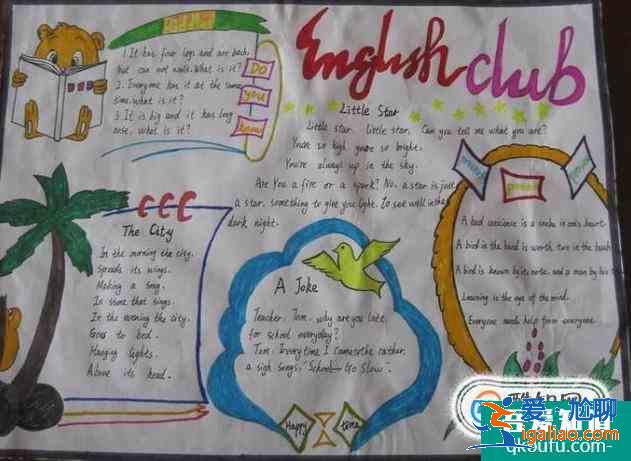 1. It has four legs and one back,
but can not walk. What is it?
2. Everyone has it at the same
time. what is it?
3. It is big and it has long
nose, what is it?
DO
you
know
English club
Little Star
Little star, little star, Can you tell me what you are?
You're so high you're so bright.
You're always up in the sky.
Are You a fire or a spark? No, a star is just
a star. something to give you light. To see well in the
dark night.
The City
In the morning the city.
Spreads its wings.
Making a song.
In stone that sings.
In the evening the city.
Goes to bed.
Hanging lights.
Above its head.
A Joke
Teacher: Tom. why are you late
for school everyday?
Tom: Every time I come the
a sign songs: "School — Go Slow".
Happy
time
A bad conscience is a snake in one's heart.
A bird in the hand is worth two in the bush
A bird is known by its note, and a man by his
Learning is the eye of the mind.
Everyone needs help from everyone.
爱尬聊
igaliao.com
qk5ufu.com